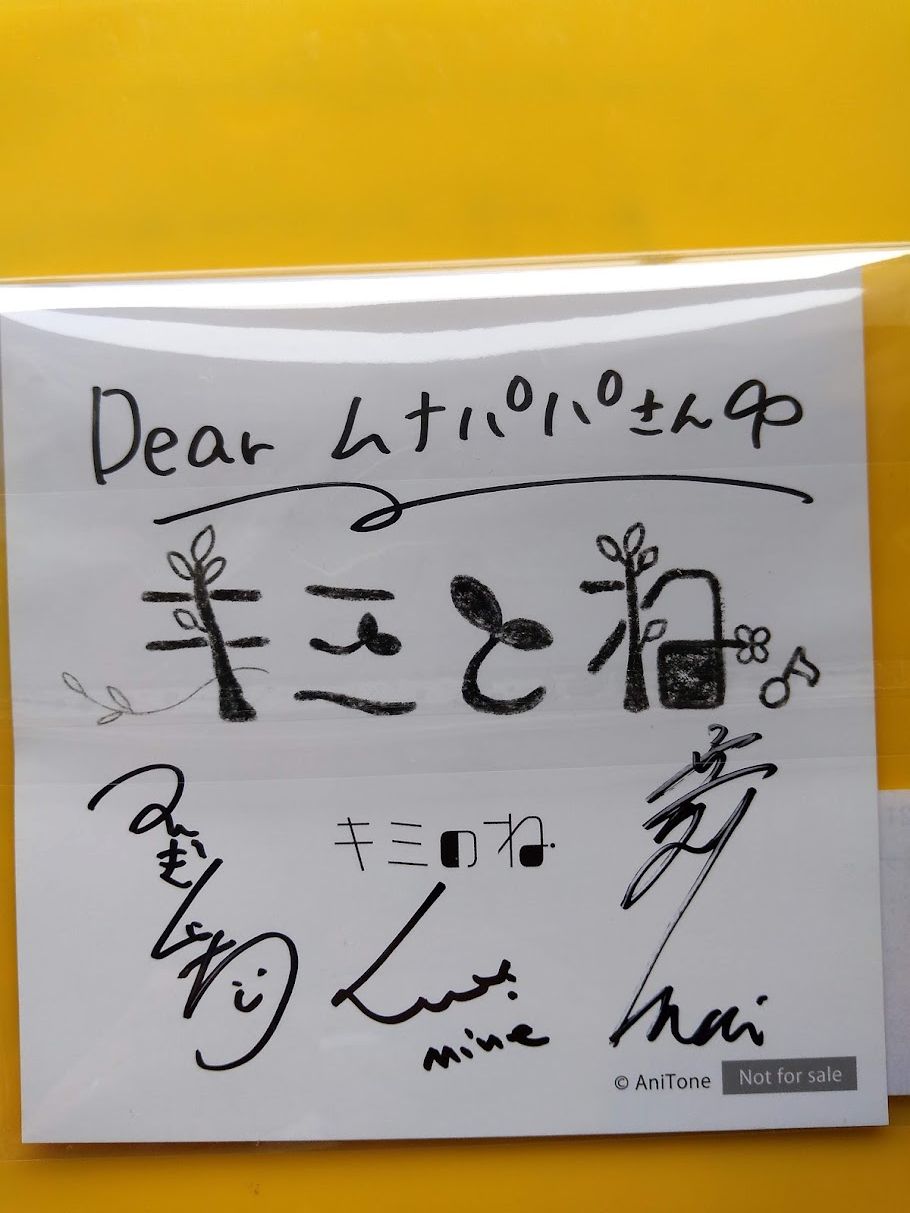 Dear ムナパパさん
キミとね
キミのね.
mine
mai
© AniTone
Not for sale